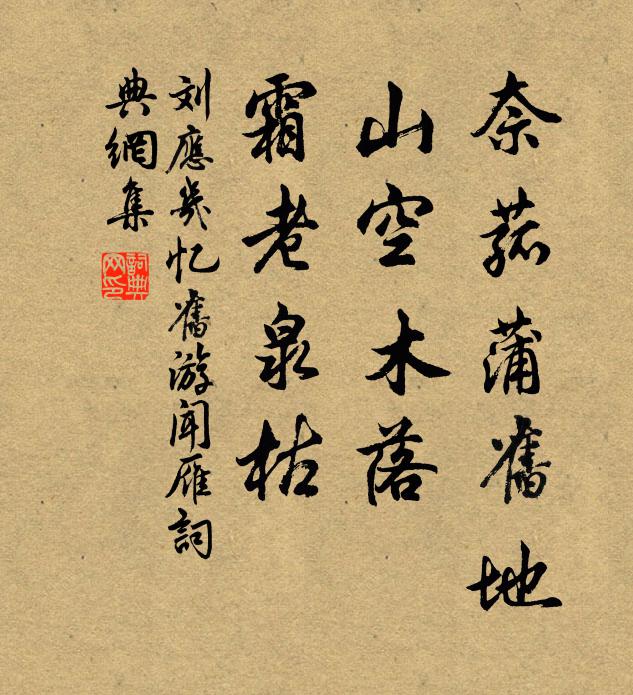 奈菰蒲舊地
山空木落
霜老泉枯
刘應幾忆舊游闻雁詞
典網集
詞典網印